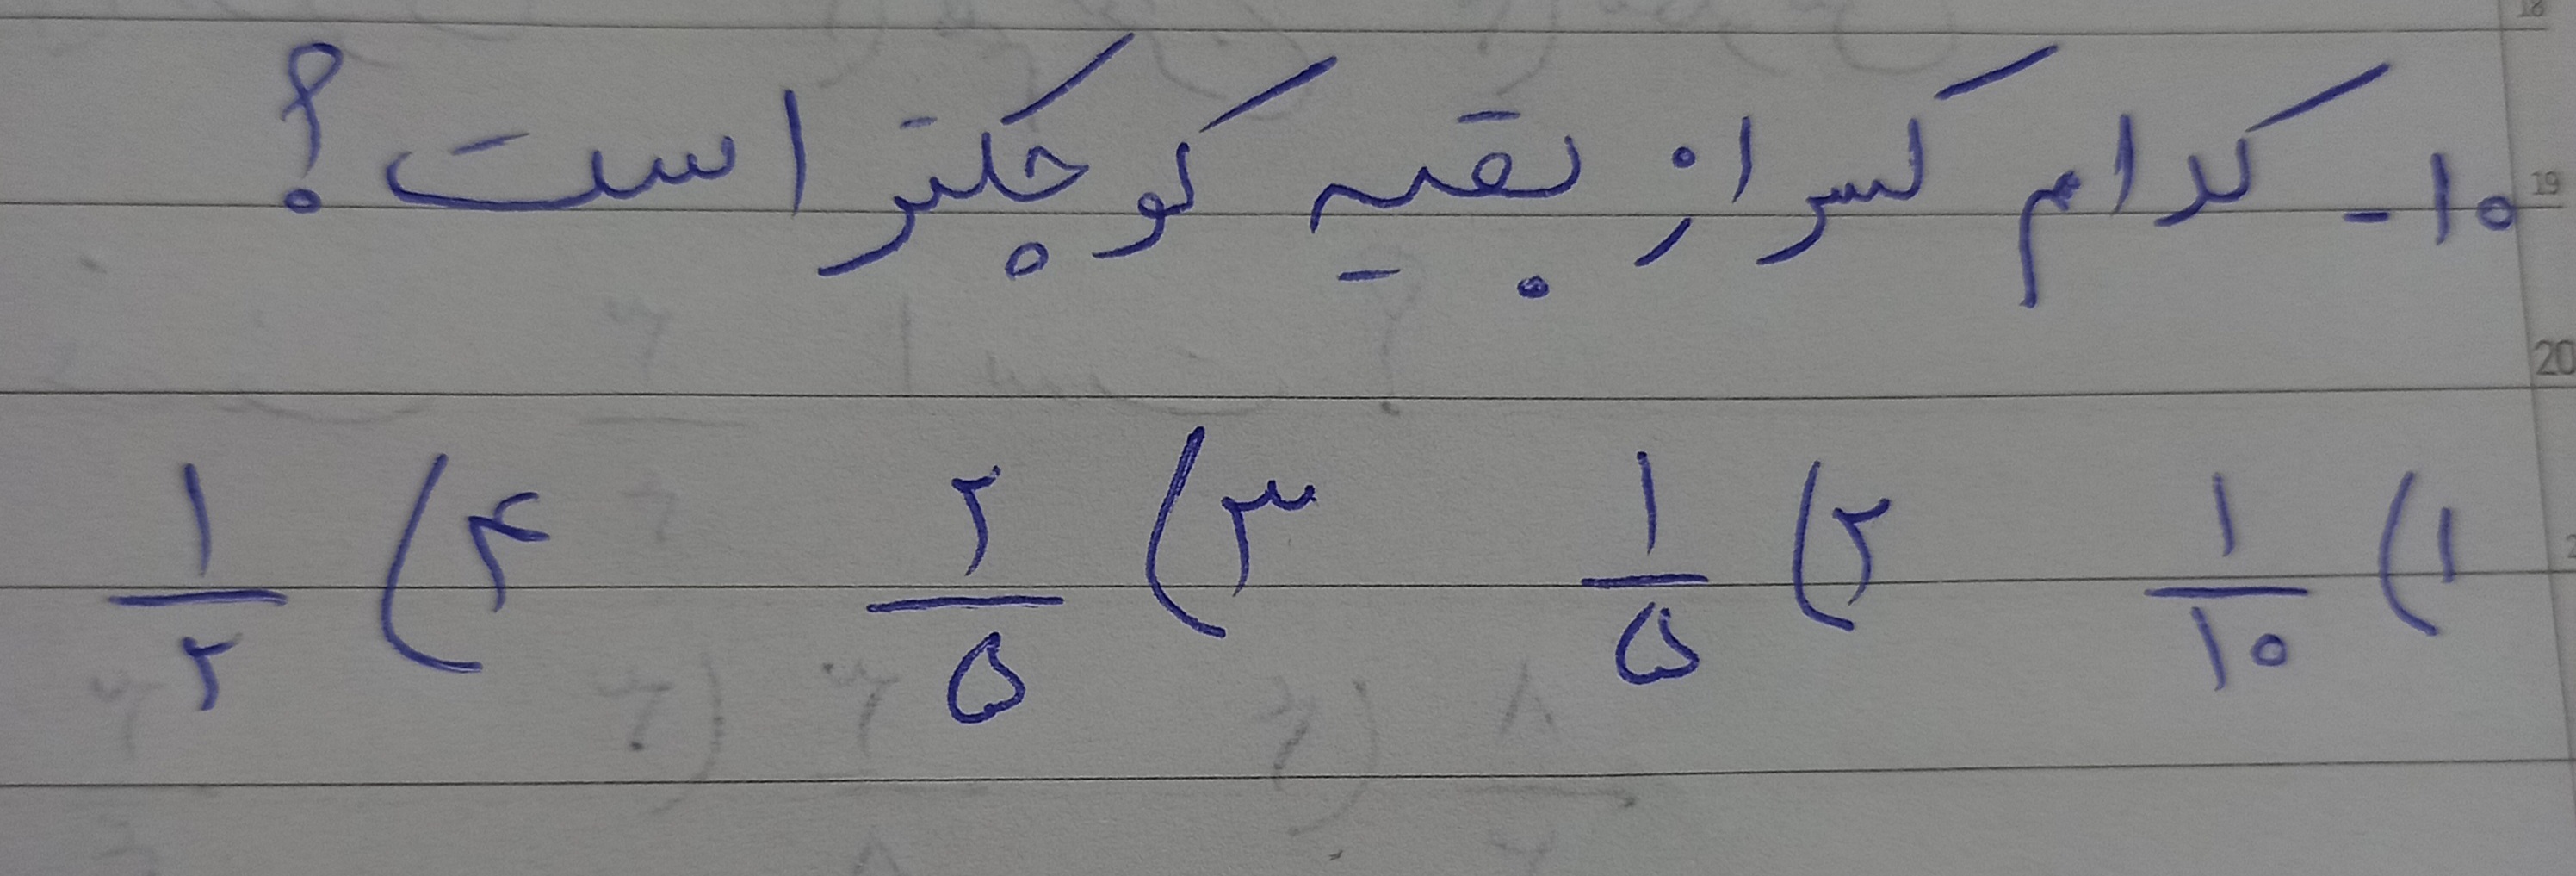 ۱۰- کدام کسر از بقیه کوچکتر است؟
۱) ۱/۱۰ ۲) ۱/۵ ۳) ۲/۵ ۴) ۱/۲
18
19
20